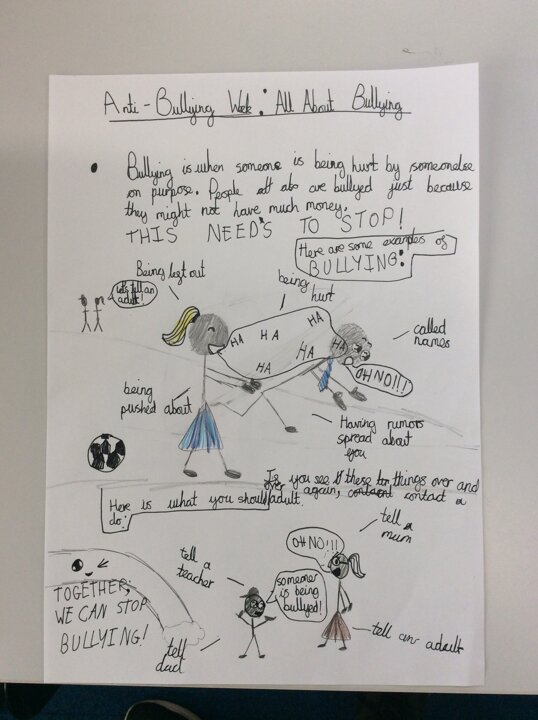 Anti-Bullying Week: All About Bullying
Bullying is when someone is being hurt by someonelse
on purpose. People are bullyed just because
they might not have much money.
THIS NEEDS TO STOP!
Here are some examples of
BULLYING:
Being left out
let's tell an
adult!
being
hurt
HA
HA
HA
HA
HA
HA
called
names
OH NO!!!
being
pushed about
Having rumors
spread about
you
If you see these things over and
over again, contact a
adult.
Here is what you should
do:
tell a
mum
OH NO!!!
tell a
teacher
someone
is being
bullyed!
TOGETHER;
WE CAN STOP
BULLYING!
tell
dad
tell an adult